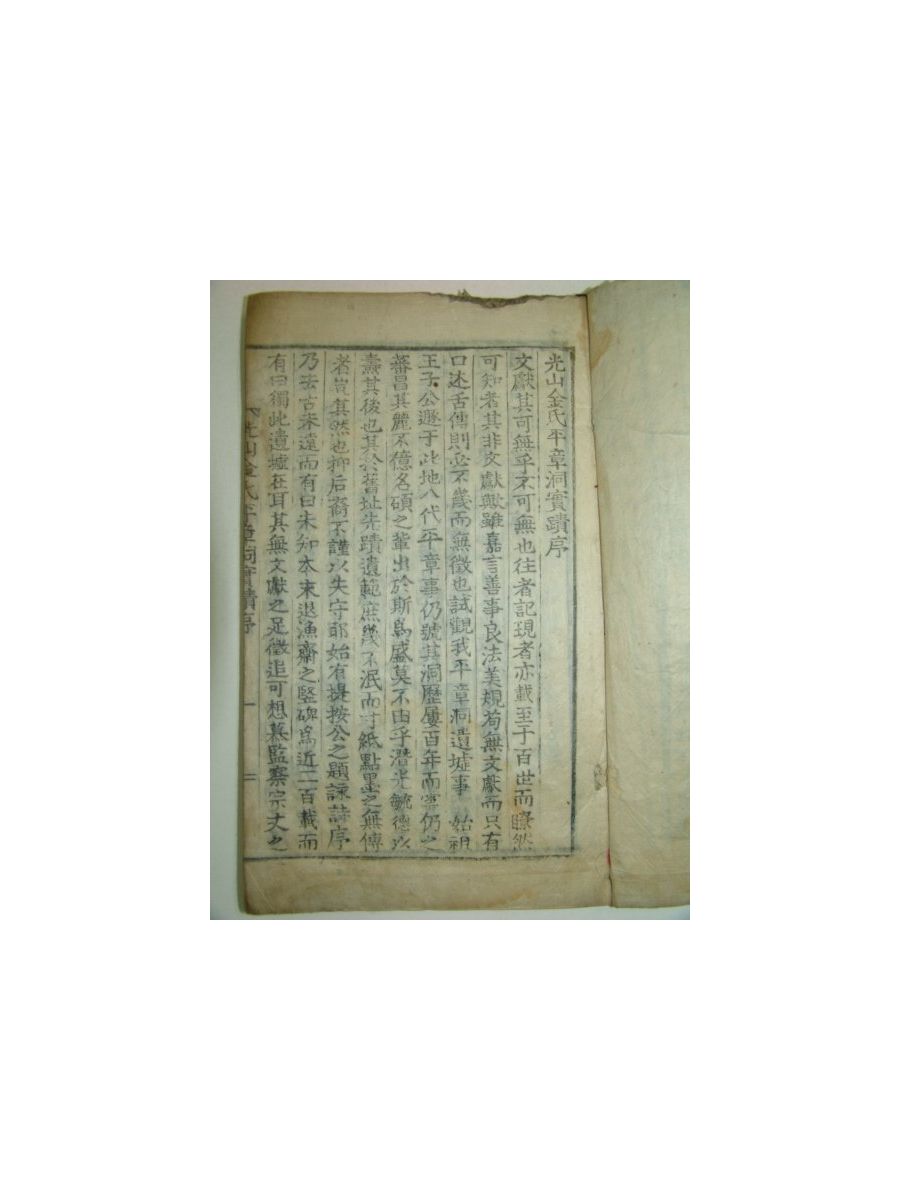 光山金氏平章洞實蹟序
文獻其可無乎不可無也往者記現者亦載至于百世而瞭然
可知者其非文獻歟雖嘉言善事良法美規苟無文獻而只有
口述舌傳則必不幾而無徵也試觀我平章洞遺墟事 始祖
王子公遯于此地八代平章事仍號其洞歷屢百年而寧仍之
蕃昌其麗不億名碩之輩出於斯爲盛莫不由乎潛光毓德以
壽其後也其於舊址先蹟遺範庶幾不泯而寸紙點墨之無傳
者豈其然也抑后裔不謹以失守耶始有提按公之題詠詩序
乃去古未遠而有曰未知本末退漁齋之竪碑爲近二百載而
有曰獨此遺墟在耳其無文獻之足徵追可想慕監察宗丈之
光山金氏平章洞實蹟序 一 二